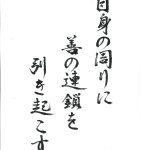 自身の周りに
善の連鎖を
引き起こす